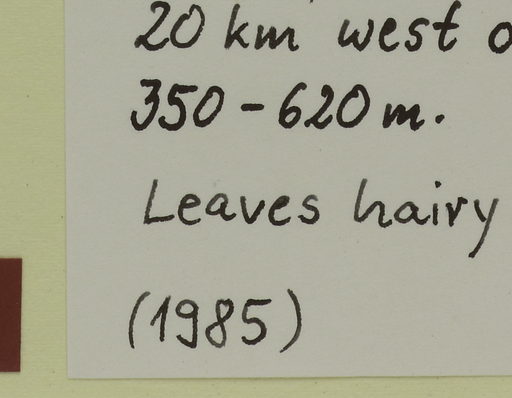 20 km west o
350-620 m.
Leaves hairy
(1985)